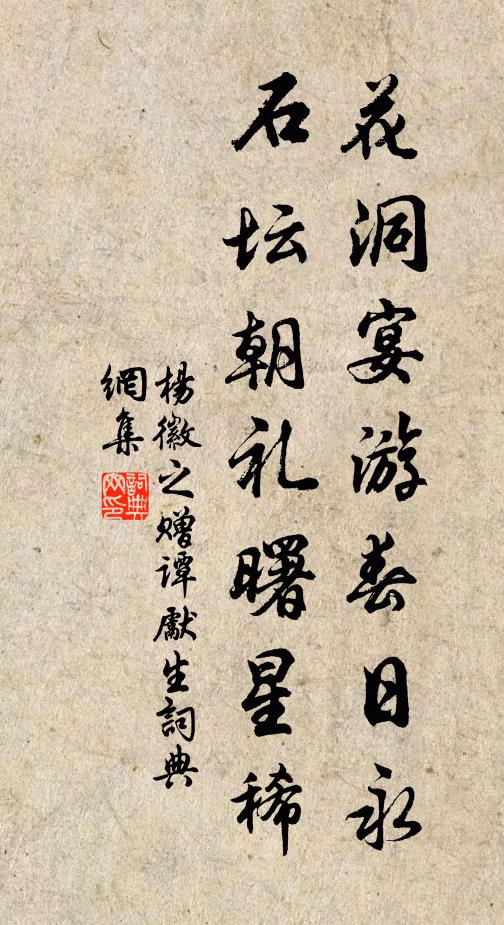 花洞宴游春日永
石坛朝礼曙星稀
楊徽之赠譚獻生詞典
網集
詞典
网印